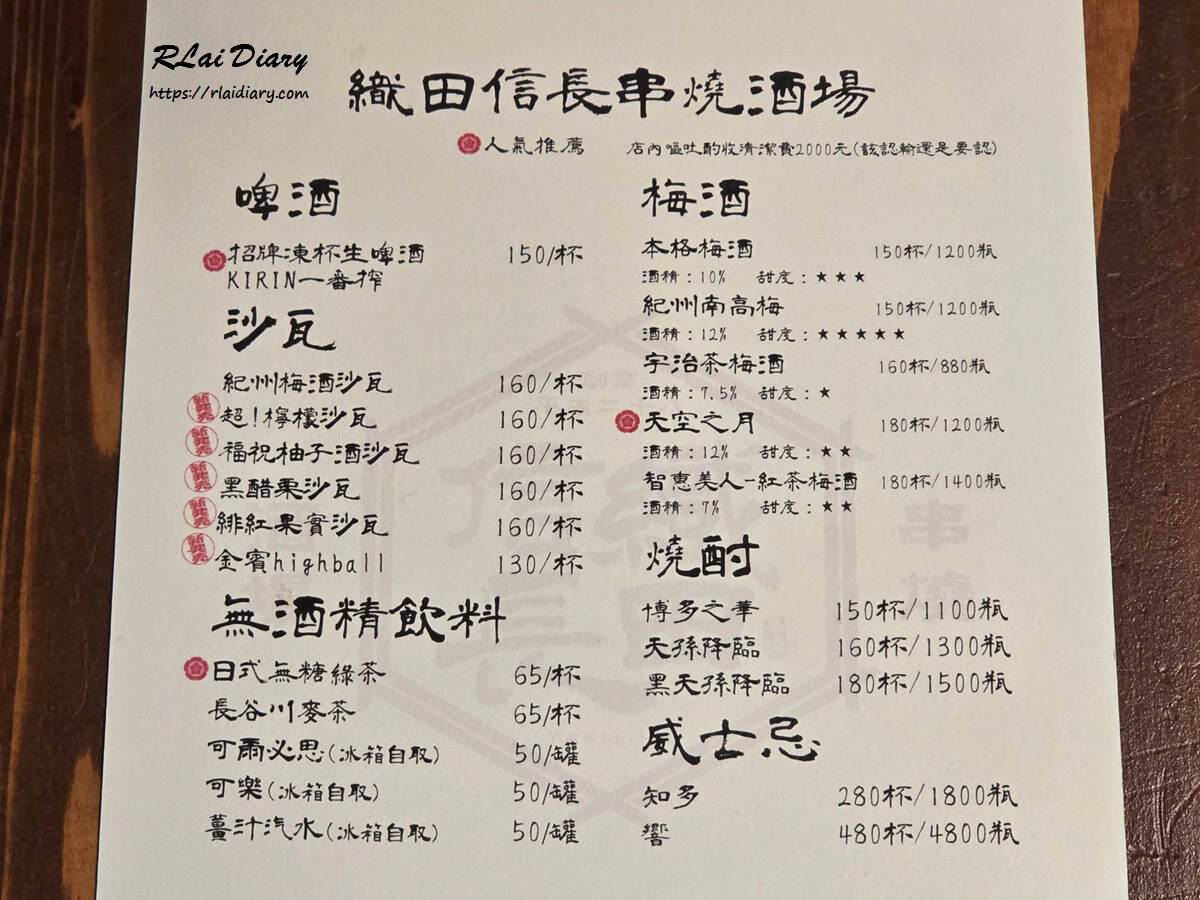 RLai Diary
https://rlaidiary.com
織田信長串燒酒場
人氣推薦 店內嘔吐酌收清潔費2000元(該認輸還是要認)
啤酒
招牌凍杯生啤酒 150/杯
KIRIN一番搾
沙瓦
紀州梅酒沙瓦 160/杯
新發売 超!檸檬沙瓦 160/杯
新發売 福祝柚子酒沙瓦 160/杯
新發売 黑醋栗沙瓦 160/杯
新發売 緋紅果實沙瓦 160/杯
新發売 金賓highball 130/杯
無酒精飲料
日式無糖綠茶 65/杯
長谷川麥茶 65/杯
可爾必思(冰箱自取) 50/罐
可樂(冰箱自取) 50/罐
薑汁汽水(冰箱自取) 50/罐
梅酒
本格梅酒 150杯/1200瓶
酒精:10% 甜度:★★★
紀州南高梅 150杯/1200瓶
酒精:12% 甜度:★★★★★
宇治茶梅酒 160杯/880瓶
酒精:7.5% 甜度:★
天空之月 180杯/1200瓶
酒精:12% 甜度:★★
智惠美人-紅茶梅酒 180杯/1400瓶
酒精:7% 甜度:★★
燒酎
博多之華 150杯/1100瓶
天孫降臨 160杯/1300瓶
黑天孫降臨 180杯/1500瓶
威士忌
知多 280杯/1800瓶
響 480杯/4800瓶